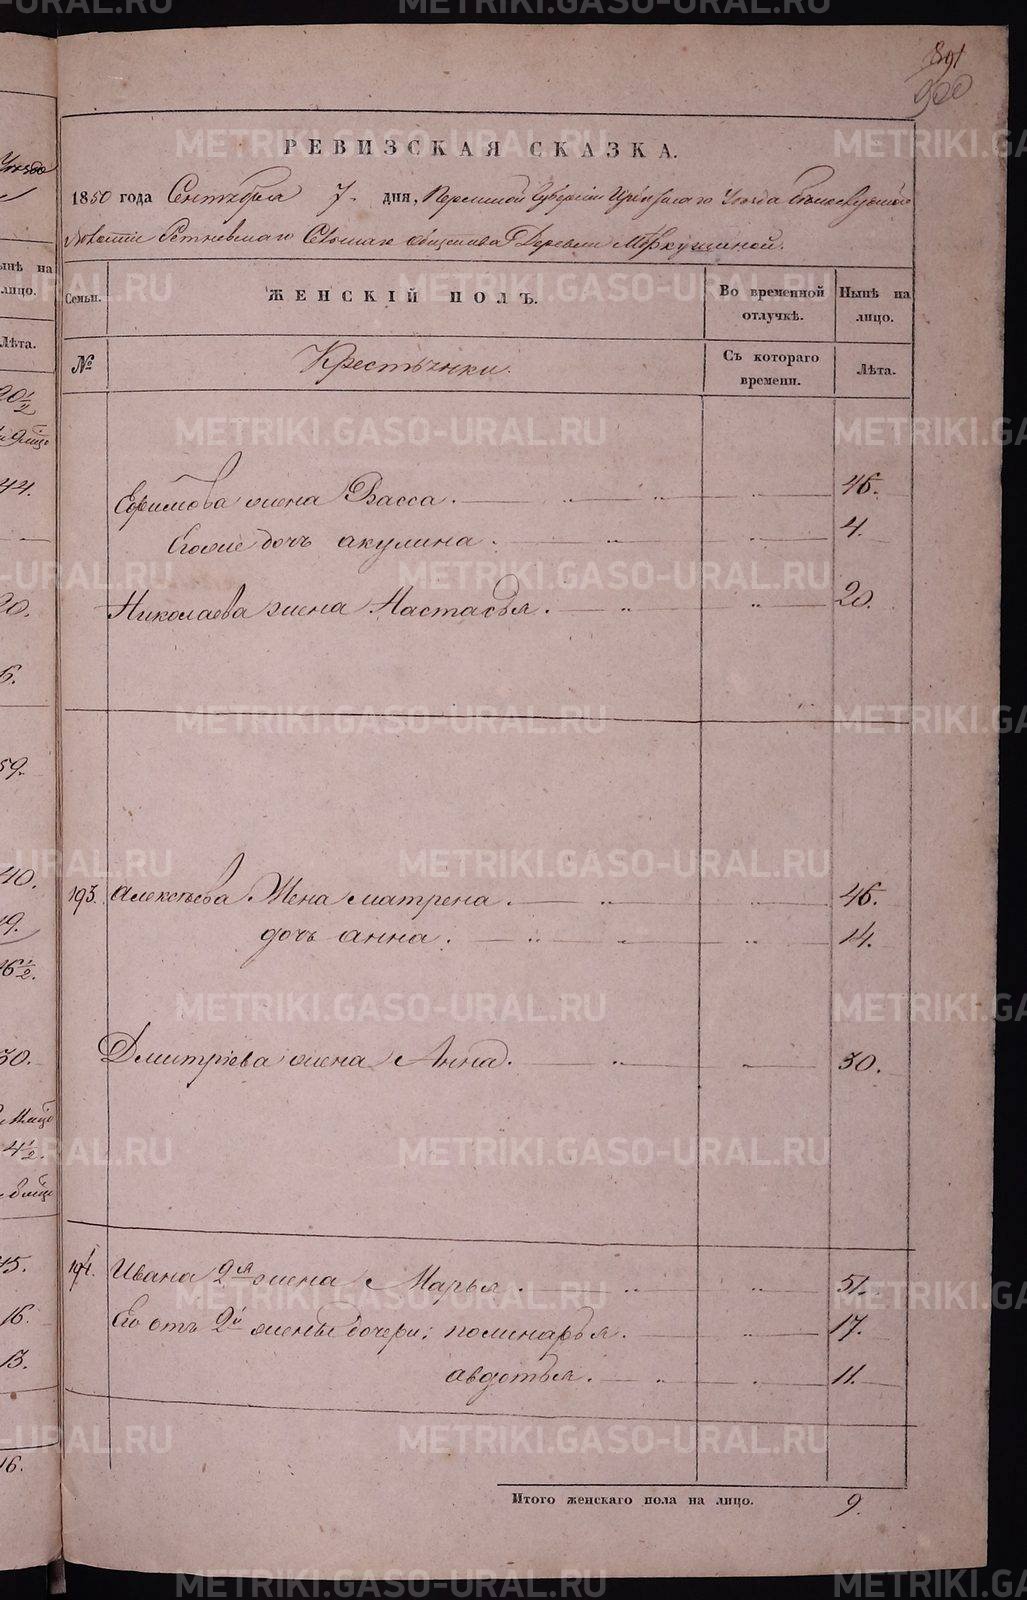 891
900
РЕВИЗСКАЯ СКАЗКА.
1850 года Сентября 7 дня, Пермской Губернии Ирбитскаго Уезда Белослудской
Волости Ретневскаго Сельскаго общества Деревни Меркушиной.
Семьи. ЖЕНСКІЙ ПОЛЪ. Во временной отлучкѣ. Нынѣ на лицо.
№ Крестьянки. Съ котораго времени. Лѣта.
Ефимова жена Васса. 46.
Его же дочь акулина. 4.
Николаева жена Настасья. 20.
193. Алексѣева Жена матрена. 46.
дочь анна. 14.
Дмитріева жена Анна. 30.
194. Ивана 2я жена Марья. 51.
Его отъ 2й жены дочери: полинарья. 17.
авдотья. 11.
Итого женскаго пола на лицо. 9.
Уезда
ынѣ на
лицо.
Лѣта.
20½
44.
20.
6.
59.
40.
19.
16½.
30.
4½.
45.
16.
13.
16.
METRIKI.GASO-URAL.RU